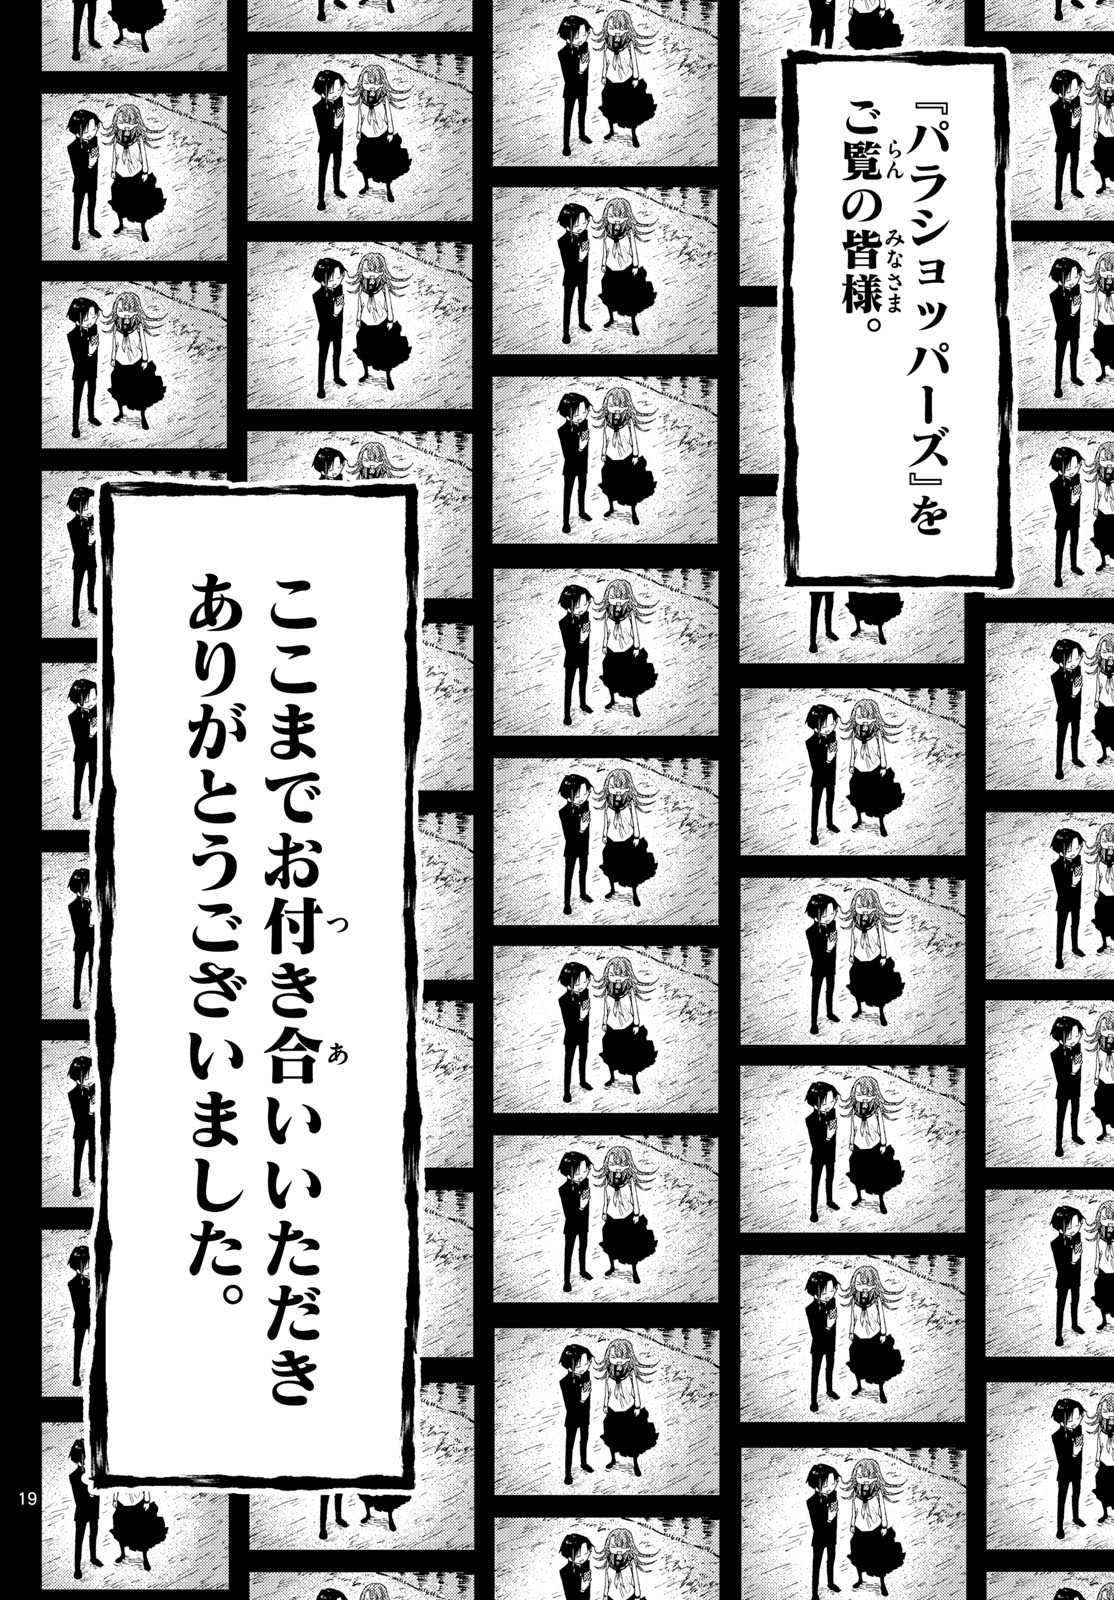 『パラショッパーズ』を
ご覧の皆様。
らん
みなさま
ここまでお付き合いいただき
つ
あ
ありがとうございました。
19